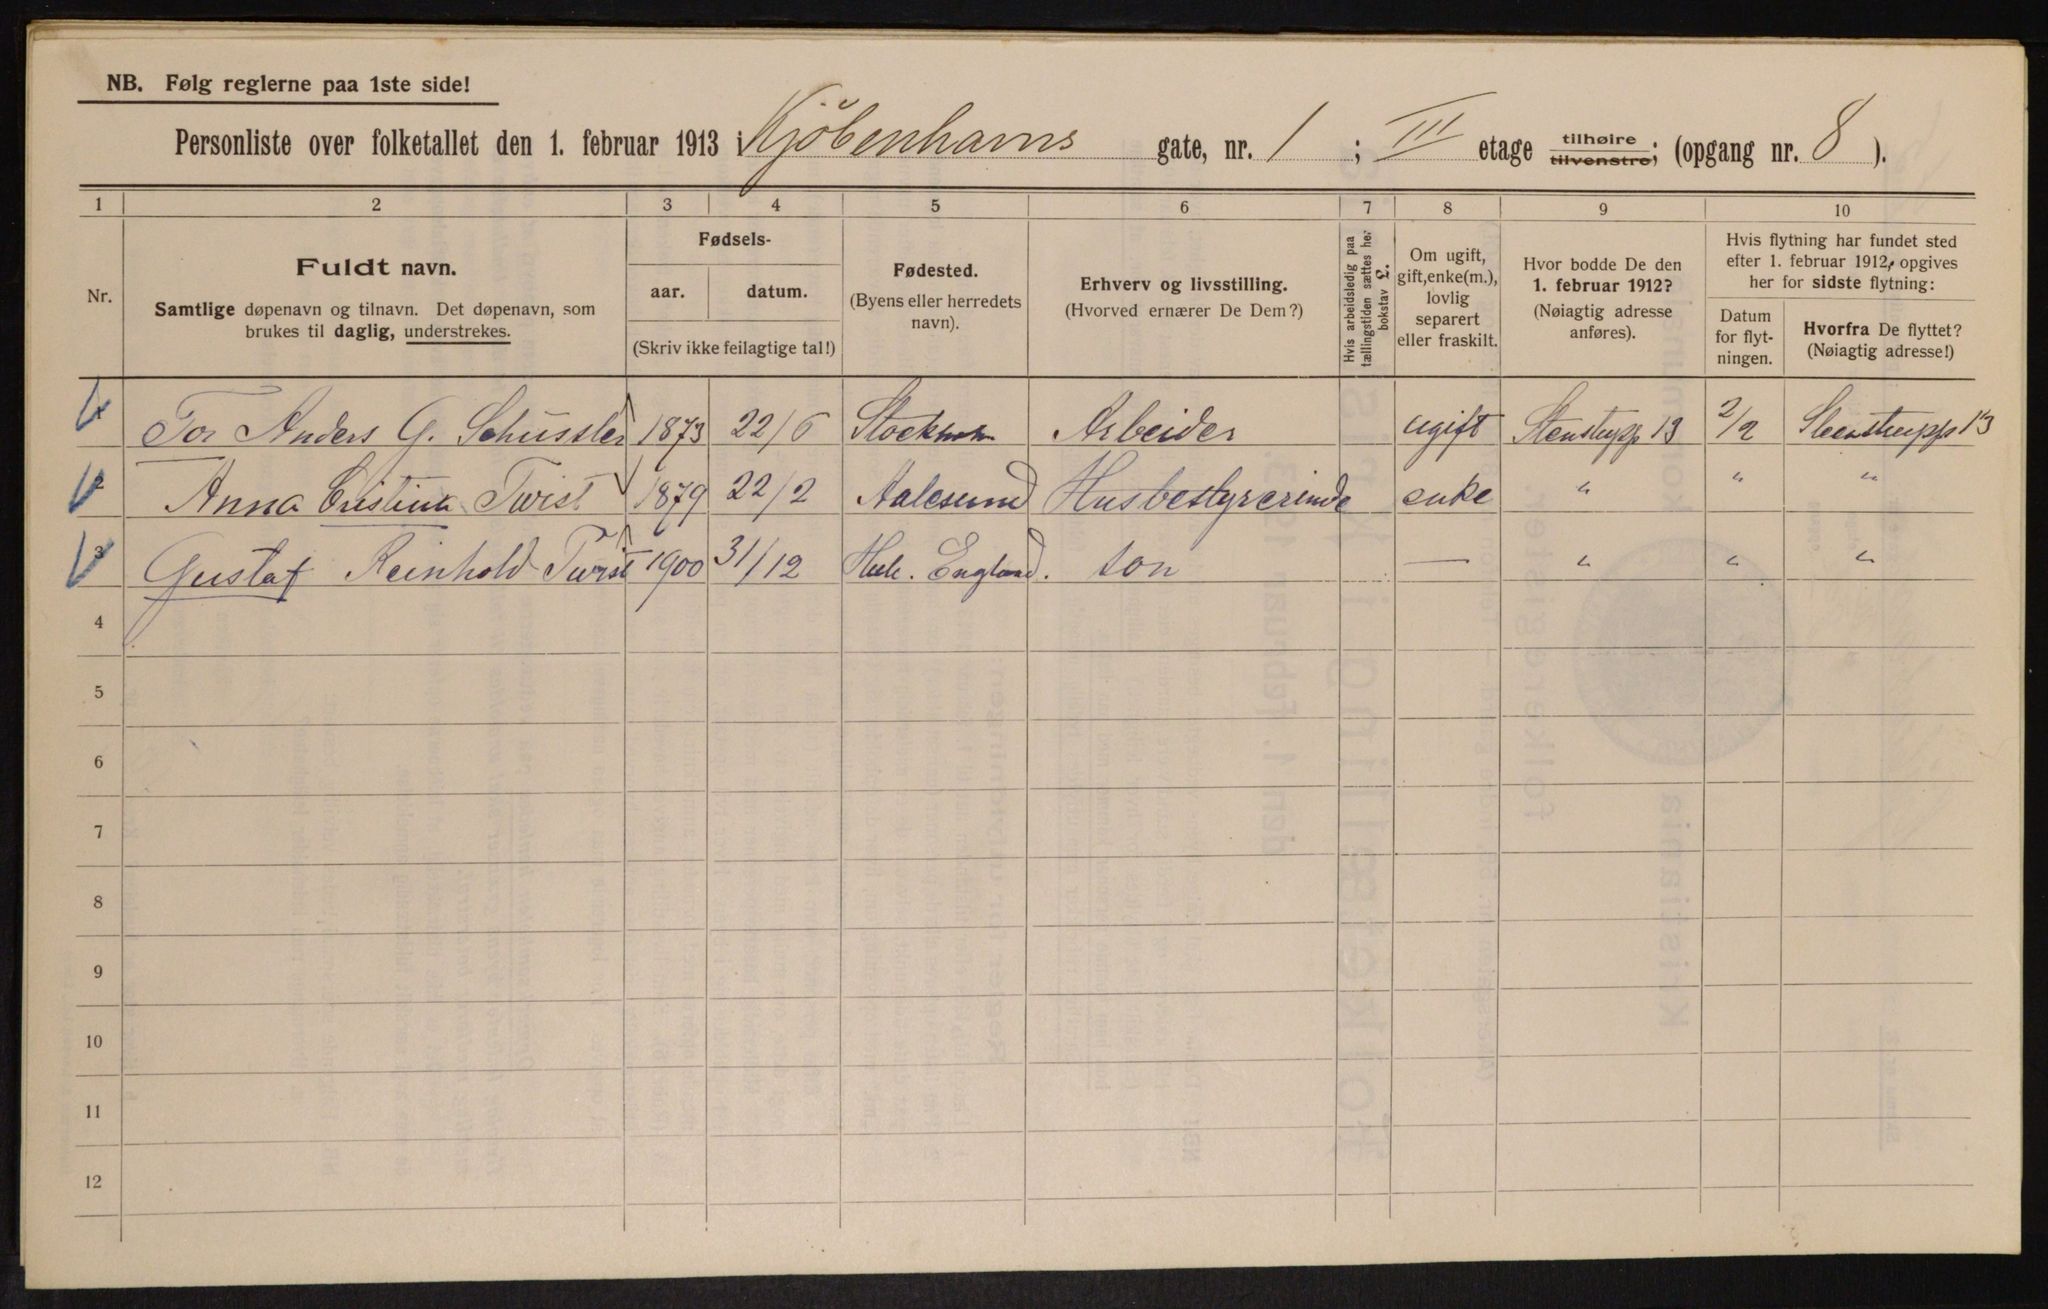 NB. Følg reglerne paa 1ste side!
Personliste over folketallet den 1. februar 1913 i Kjøbenhavns gate, nr. 1 ; III etage tilhøire tilvenstre; (opgang nr. 8 ).
1 2 3 4 5 6 7 8 9 10
Nr.
Fuldt navn.
Samtlige døpenavn og tilnavn. Det døpenavn, som
brukes til daglig, understrekes.
Fødsels-
aar. datum.
(Skriv ikke feilagtige tal!)
Fødested.
(Byens eller herredets
navn).
Erhverv og livsstilling.
(Hvorved ernærer De Dem?)
Hvis arbeidsledig paa
tællingstiden sættes her
bokstav L.
Om ugift,
gift, enke(m.),
lovlig
separert
eller fraskilt.
Hvor bodde De den
1. februar 1912?
(Nøiagtig adresse
anføres).
Hvis flytning har fundet sted
efter 1. februar 1912, opgives
her for sidste flytning:
Datum
for flyt-
ningen.
Hvorfra De flyttet?
(Nøiagtig adresse!)
1 Tor Anders G. Schüssler 1873 22/6 Stockholm Arbeider ugift Stenstrupp 13 2/2 Steenstrupp 13
2 Anna Cristina Twist 1879 22/2 Aalesund Husbestyrerinde enke " " "
3 Gustaf Reinhold Twist 1900 31/12 England. son — " " "
4
5
6
7
8
9
10
11
12